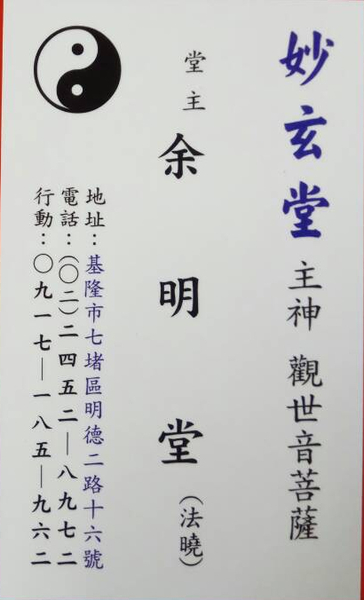 妙玄堂 主神 觀世音菩薩
堂主 余明堂(法曉)
地址：基隆市七堵區明德二路十六號
電話：(〇二)二四五二—八九七二
行動：〇九一七—一八五—九六二